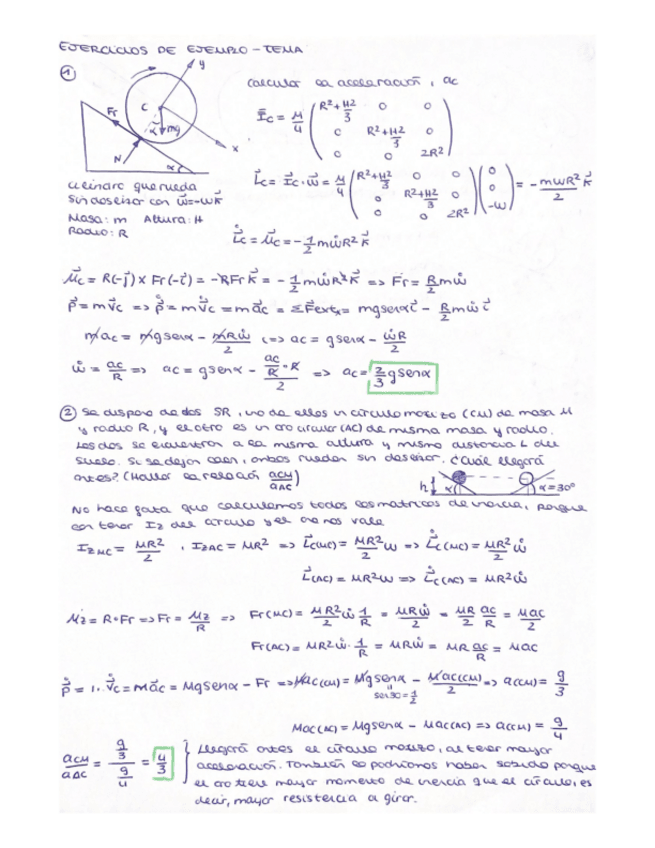 EJERCICIOS DE EJEMPLO - TEMA
① y
calcular la aceleración, ac
Fr C α mg x N α
Īc = M/4 ( R²+H²/3 0 0
0 R²+H²/3 0
0 0 2R² )
cilindro que rueda
sin deslizar con ω⃗=-ωk⃗
Masa: m Altura: H
Radio: R
L⃗c = I⃗c·ω⃗ = M/4 ( R²+H²/3 0 0
0 R²+H²/3 0
0 0 2R² ) ( 0
0
-ω ) = - mωR²/2 k⃗
L⃗̇c = M⃗c = - 1/2 mω̇R² k⃗
M⃗c = R(-j⃗) x Fr(-i⃗) = -RFr k⃗ = - 1/2 mω̇R² k⃗ => Fr = R/2 mω̇
P⃗ = mv⃗c => P⃗̇ = mv⃗̇c = ma⃗c = ΣFext x = mgsenα i⃗ - R/2 mω̇ i⃗
mac = mgsenα - mRω̇/2 (=> ac = gsenα - ω̇R/2
ω̇ = ac/R => ac = gsenα - (ac/R · R)/2 => ac = 2/3 gsenα
② Se dispone de dos SR, uno de ellos un círculo macizo (CM) de masa M
y radio R, y el otro es un aro circular (AC) de misma masa y radio.
Los dos se encuentran a la misma altura y misma distancia L del
suelo. Si se dejan caer, ambos ruedan sin deslizar. ¿Cuál llegará
antes? (Hallar la relación aCM/aAC)
h α α=30°
No hace falta que calculemos todas las matrices de inercia, porque
con tener Iz del círculo y el aro nos vale
Iz MC = MR²/2 , Iz AC = MR² => L⃗c(MC) = MR²/2 ω => L⃗̇c(MC) = MR²/2 ω̇
L⃗(AC) = MR²ω => L⃗̇c(AC) = MR²ω̇
Mz = R·Fr => Fr = Mz/R => Fr(MC) = MR²/2 ω̇ 1/R = MRω̇/2 = MR/2 ac/R = Mac/2
Fr(AC) = MR²ω̇ · 1/R = MRω̇ = MR ac/R = Mac
P⃗̇ = M·v⃗̇c = ma⃗c = Mgsenα - Fr => Mac(CM) = Mgsenα - Mac(CM)/2 => a(CM) = g/3
sen30=1/2
Mac(AC) = Mgsenα - Mac(AC) => a(CM) = g/4
aCM/aAC = (g/3)/(g/4) = 4/3
Llegará antes el círculo macizo, al tener mayor
aceleración. También lo podríamos haber sabido porque
el aro tiene mayor momento de inercia que el círculo, es
decir, mayor resistencia a girar.